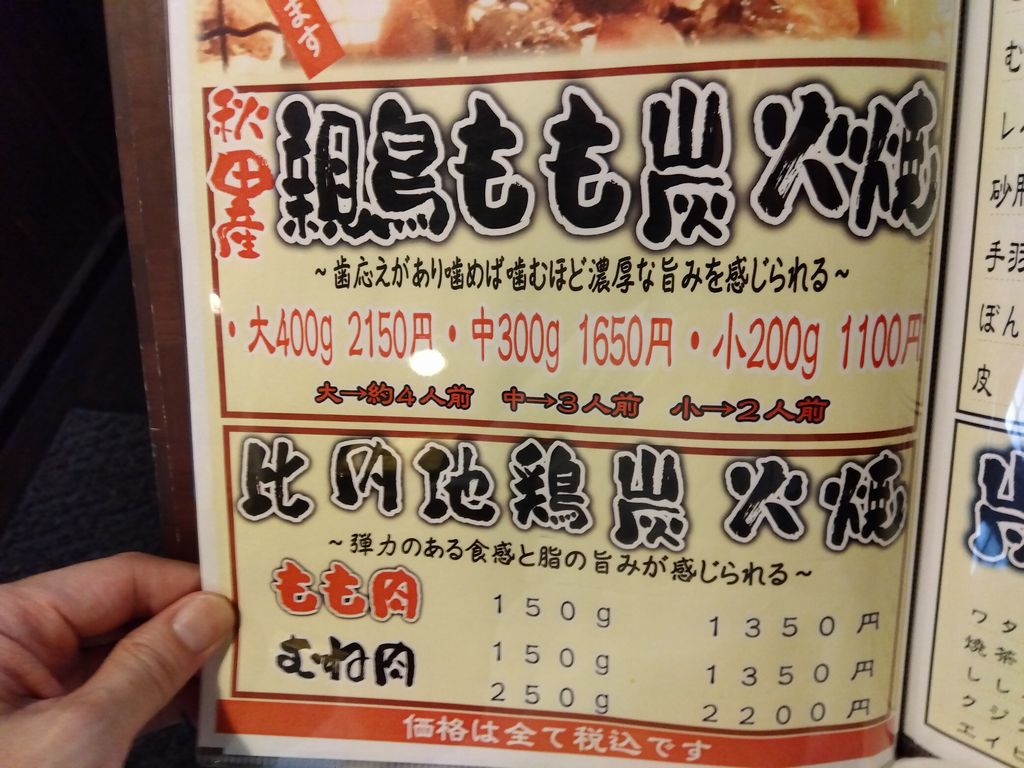 ます
秋田産
親鳥もも炭火焼
～歯応えがあり噛めば噛むほど濃厚な旨みを感じられる～
・大400g 2150円・中300g 1650円・小200g 1100円
大→約4人前 中→3人前 小→2人前
比内地鶏炭火焼
～弾力のある食感と脂の旨みが感じられる～
もも肉 150g 1350円
むね肉 150g 1350円
250g 2200円
価格は全て税込です
む
レ
砂
手羽
ぼん
皮
炭
ワタ
焼茶
しし
タジ
エイヒ